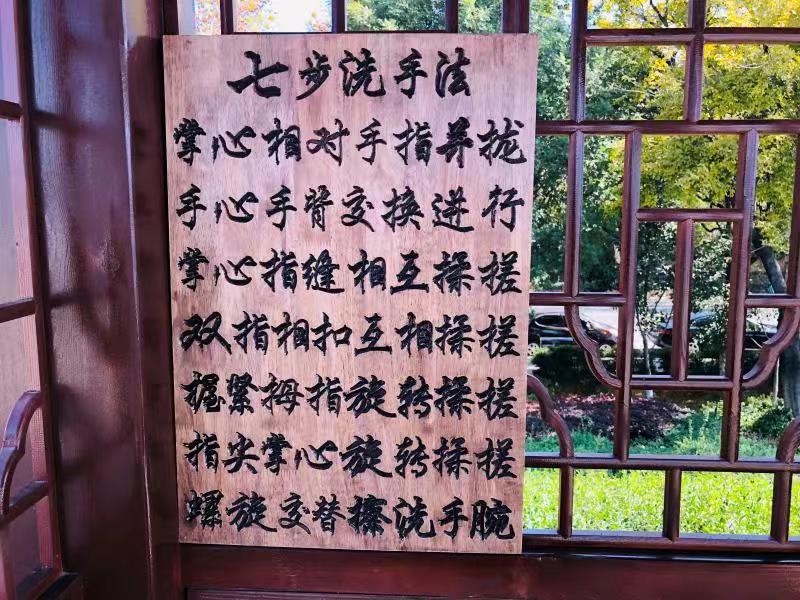 七步洗手法
掌心相对手指并拢
手心手背交换进行
掌心指缝相互揉搓
双指相扣互相揉搓
握紧拇指旋转揉搓
指尖掌心旋转揉搓
螺旋交替擦洗手腕